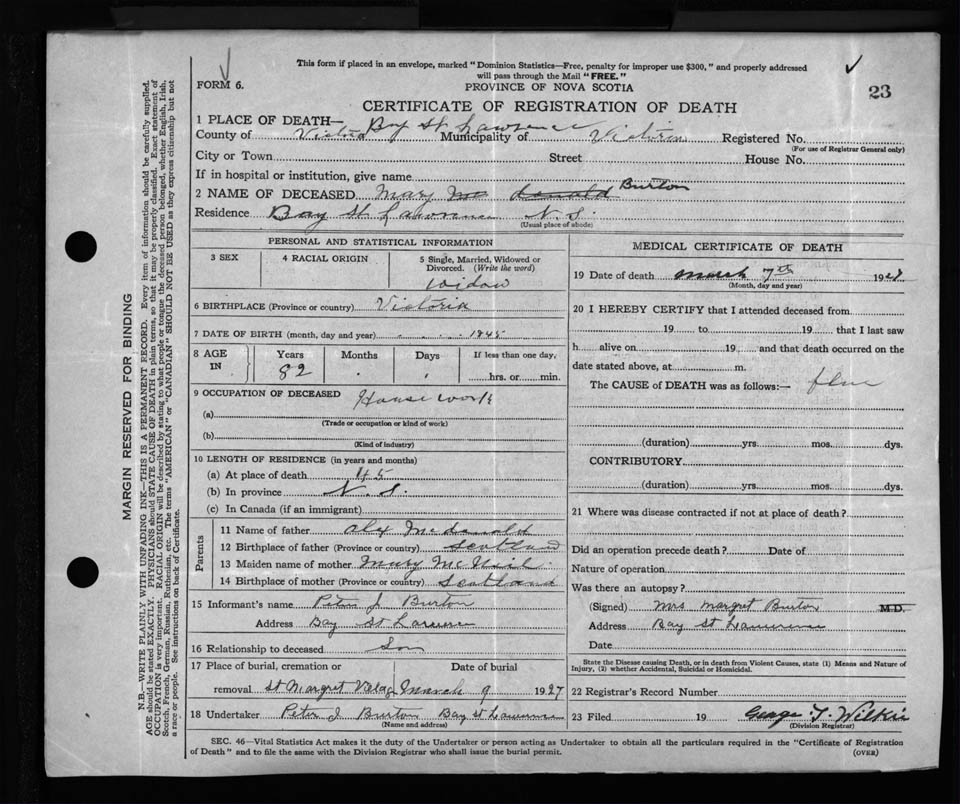 This form if placed in an envelope, marked "Dominion Statistics—Free, penalty for improper use $300," and properly addressed
will pass through the Mail "FREE."
FORM 6.
PROVINCE OF NOVA SCOTIA
23
CERTIFICATE OF REGISTRATION OF DEATH
1 PLACE OF DEATH— Bay St Lawrence
County of Victoria Municipality of Victoria Registered No.
(For use of Registrar General only)
City or Town Street House No.
If in hospital or institution, give name
2 NAME OF DECEASED Mary Mc donald Burton
Residence Bay St Lawrence N. S.
(Usual place of abode)
PERSONAL AND STATISTICAL INFORMATION
3 SEX
4 RACIAL ORIGIN
5 Single, Married, Widowed or
Divorced. (Write the word)
Widow
6 BIRTHPLACE (Province or country) Victoria
7 DATE OF BIRTH (month, day and year) 1845
8 AGE Years Months Days If less than one day,
IN 82 hrs. or min.
9 OCCUPATION OF DECEASED House work
(a)
(Trade or occupation or kind of work)
(b)
(Kind of industry)
10 LENGTH OF RESIDENCE (in years and months)
(a) At place of death 45
(b) In province N. S.
(c) In Canada (if an immigrant)
Parents
11 Name of father Alex Mcdonald
12 Birthplace of father (Province or country) Scotland
13 Maiden name of mother Mary
14 Birthplace of mother (Province or country) Scotland
15 Informant's name Peter J Burton
Address Bay St Lawrence
16 Relationship to deceased Son
17 Place of burial, cremation or Date of burial
removal St Margret March 9 1927
18 Undertaker Peter J Burton Bay St Lawrence
(Name and address)
MEDICAL CERTIFICATE OF DEATH
19 Date of death March 7th 192
(Month, day and year)
20 I HEREBY CERTIFY that I attended deceased from
19 to 19 that I last saw
h alive on 19 and that death occurred on the
date stated above, at m.
The CAUSE of DEATH was as follows:— flue
(duration) yrs. mos. dys.
CONTRIBUTORY
(duration) yrs. mos. dys.
21 Where was disease contracted if not at place of death?
Did an operation precede death? Date of
Nature of operation
Was there an autopsy?
(Signed) Mrs Margret Burton M.D.
Address Bay St Lawrence
Date
State the Disease causing Death, or in death from Violent Causes, state (1) Means and Nature of
Injury, (2) whether Accidental, Suicidal or Homicidal.
22 Registrar's Record Number
23 Filed 19 George T. Wilkie
(Division Registrar)
SEC. 46—Vital Statistics Act makes it the duty of the Undertaker or person acting as Undertaker to obtain all the particulars required in the "Certificate of Registration
of Death" and to file the same with the Division Registrar who shall issue the burial permit. (OVER)
MARGIN RESERVED FOR BINDING
N.B.—WRITE PLAINLY WITH UNFADING INK—THIS IS A PERMANENT RECORD. Every item of information should be carefully supplied.
AGE should be stated EXACTLY. PHYSICIANS should STATE CAUSE OF DEATH in plain terms, so that it may be properly classified. Exact statement of
OCCUPATION is very important. RACIAL ORIGIN will be described by stating to what people or tongue the deceased person belonged, whether English, Irish,
Scotch, French, German, Russian, Ruthenian, etc. The terms "AMERICAN" or "CANADIAN" SHOULD NOT BE USED as they express citizenship but not
a race or people. See instructions on back of Certificate.